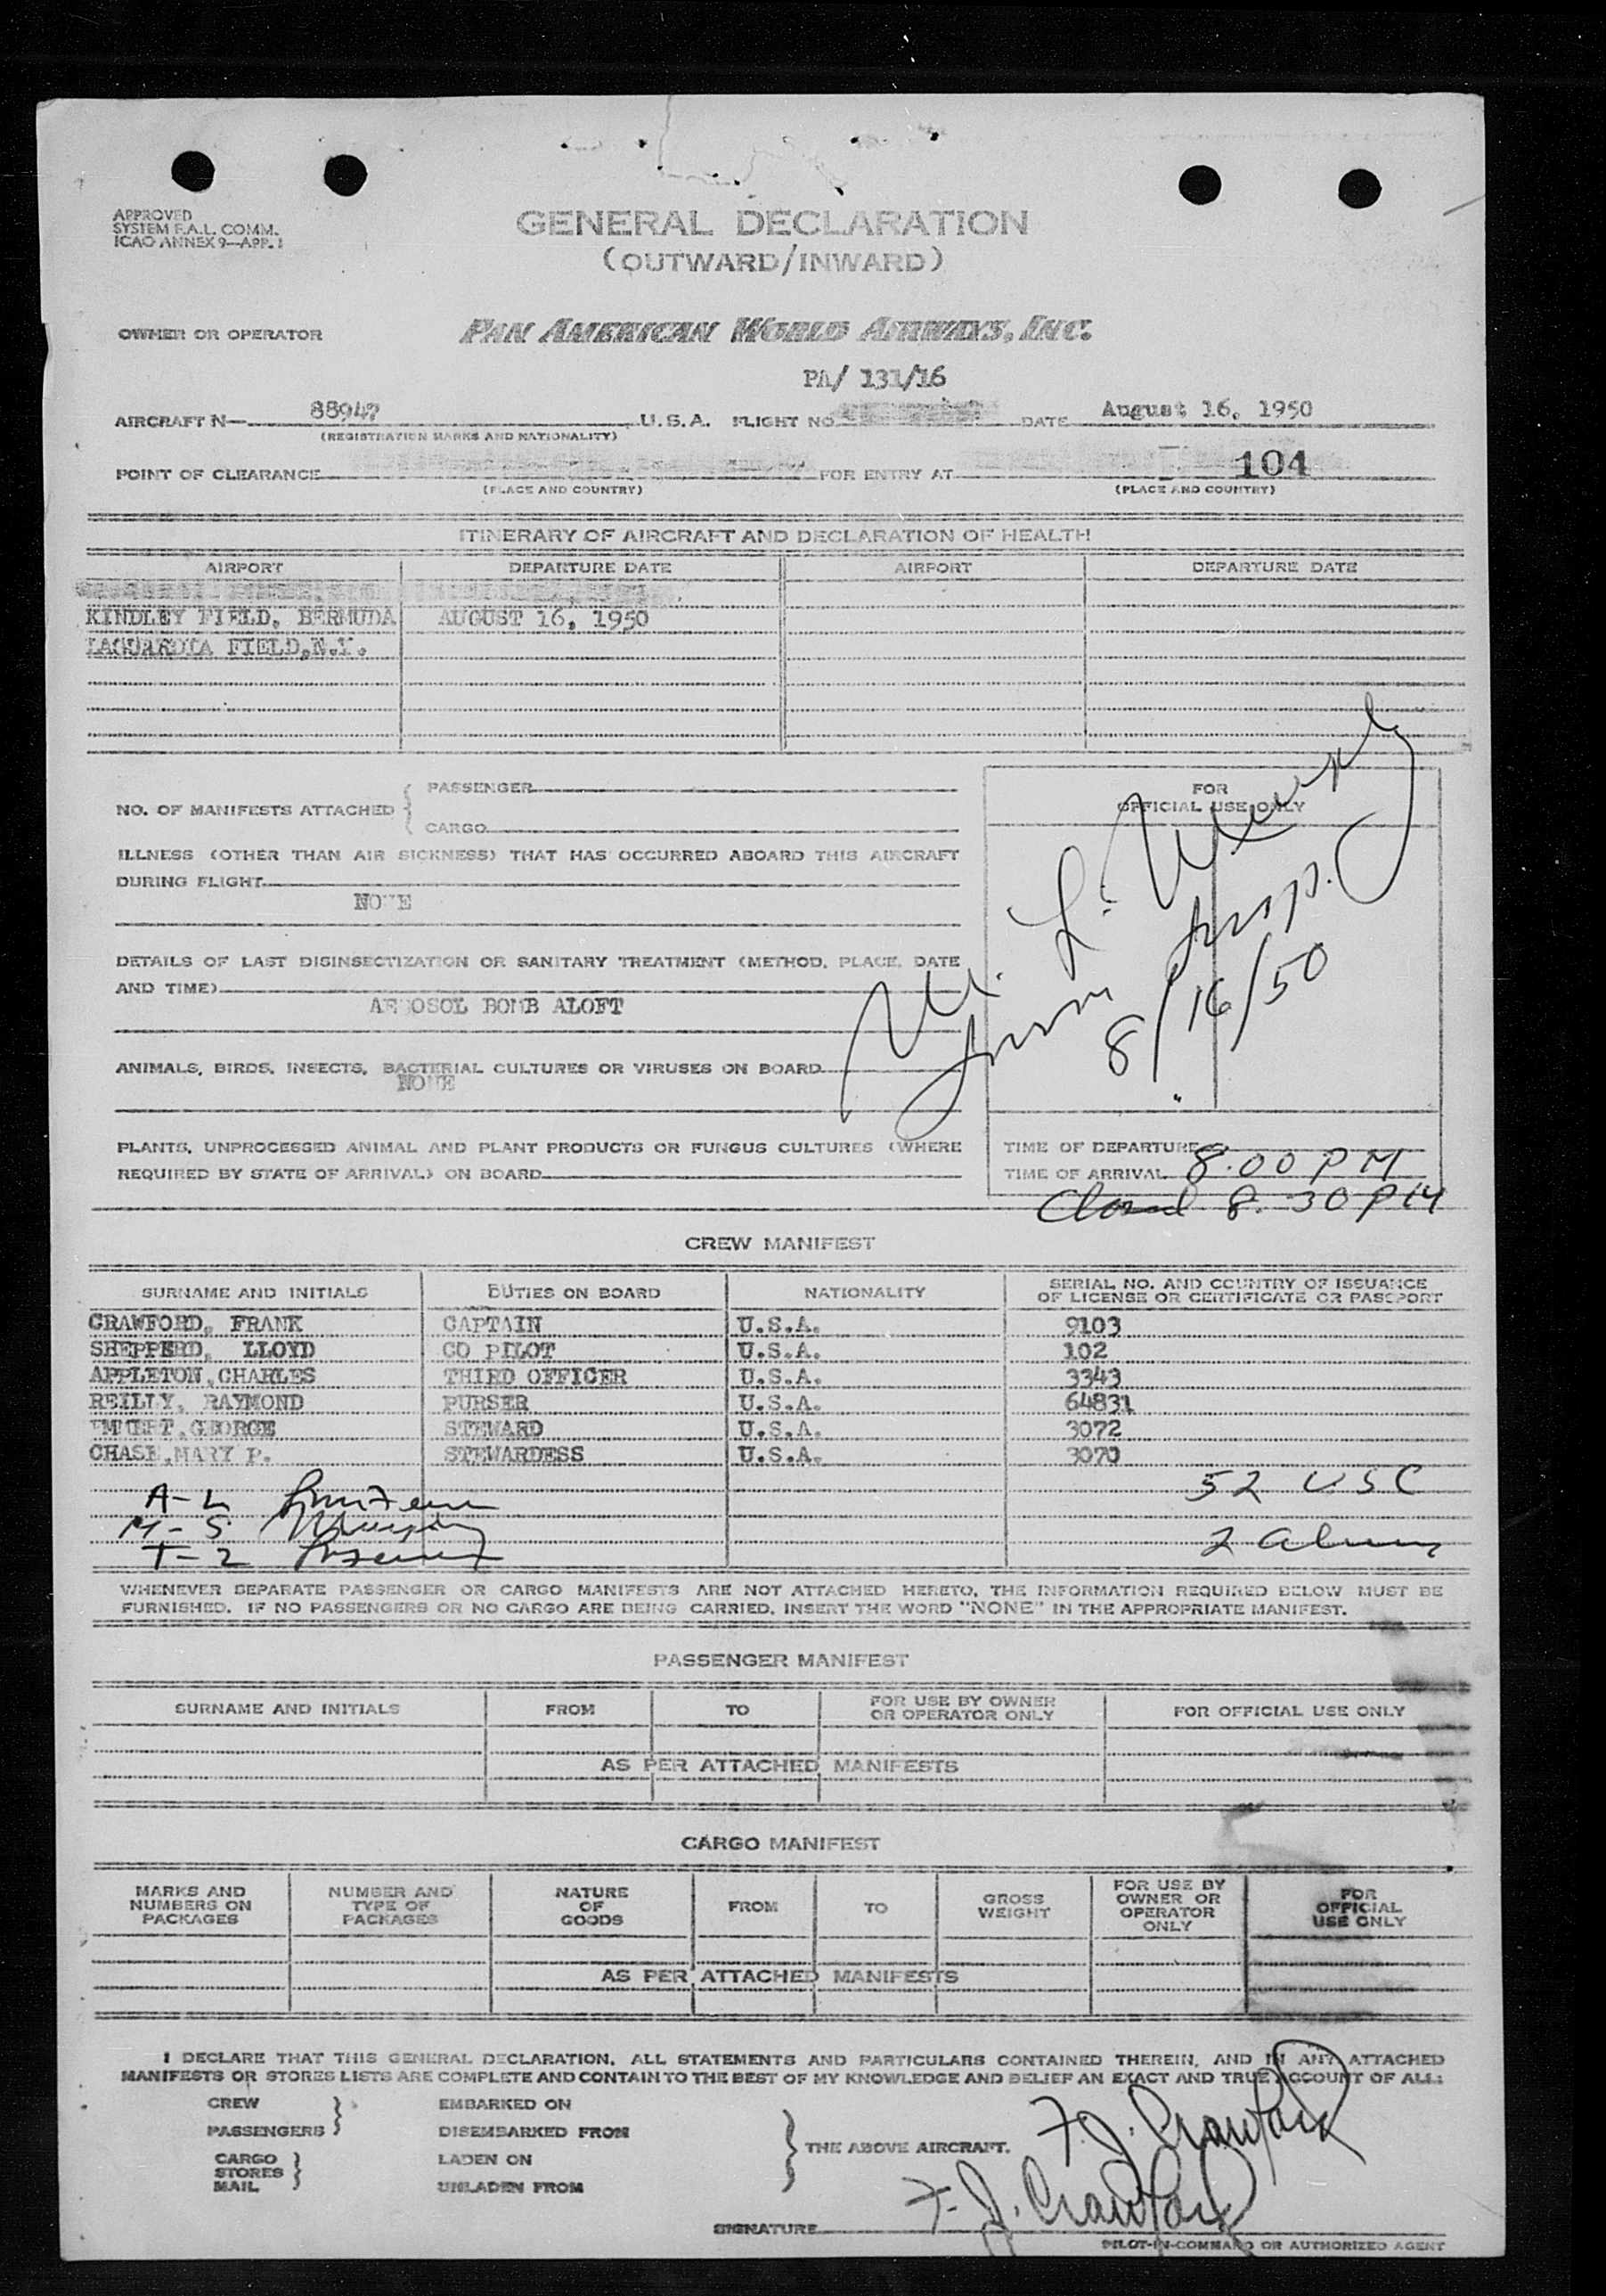 APPROVED
SYSTEM F.A.L. COMM.
ICAO ANNEX 9—APP. 1
GENERAL DECLARATION
(OUTWARD/INWARD)
OWNER OR OPERATOR PAN AMERICAN WORLD AIRWAYS, INC.
PA/ 131/16
AIRCRAFT N— 88947 U.S.A. FLIGHT NO. DATE August 16, 1950
(REGISTRATION MARKS AND NATIONALITY)
POINT OF CLEARANCE FOR ENTRY AT 104
(PLACE AND COUNTRY) (PLACE AND COUNTRY)
ITINERARY OF AIRCRAFT AND DECLARATION OF HEALTH
AIRPORT DEPARTURE DATE AIRPORT DEPARTURE DATE
KINDLEY FIELD, BERMUDA AUGUST 16, 1950
LAGUARDIA FIELD,N.Y.
NO. OF MANIFESTS ATTACHED { PASSENGER
CARGO
ILLNESS (OTHER THAN AIR SICKNESS) THAT HAS OCCURRED ABOARD THIS AIRCRAFT
DURING FLIGHT
NONE
DETAILS OF LAST DISINSECTIZATION OR SANITARY TREATMENT (METHOD, PLACE, DATE
AND TIME)
AEROSOL BOMB ALOFT
ANIMALS, BIRDS, INSECTS, BACTERIAL CULTURES OR VIRUSES ON BOARD
NONE
PLANTS, UNPROCESSED ANIMAL AND PLANT PRODUCTS OR FUNGUS CULTURES (WHERE
REQUIRED BY STATE OF ARRIVAL) ON BOARD
FOR
OFFICIAL USE ONLY
M. L. Murphy
Imm Insp.
8/16/50
TIME OF DEPARTURE
TIME OF ARRIVAL 8.00 PM
Closed 8.30 PM
CREW MANIFEST
SURNAME AND INITIALS DUTIES ON BOARD NATIONALITY SERIAL NO. AND COUNTRY OF ISSUANCE
OF LICENSE OR CERTIFICATE OR PASSPORT
CRAWFORD, FRANK CAPTAIN U.S.A. 9103
SHEPPERD, LLOYD CO PILOT U.S.A. 102
APPLETON,CHARLES THIRD OFFICER U.S.A. 3343
REILLY, RAYMOND PURSER U.S.A. 64831
GEORGE STEWARD U.S.A. 3072
CHASE,MARY P. STEWARDESS U.S.A. 3070
A-L 52 USC
M-S Murphy
T-2 2 Aliens
WHENEVER SEPARATE PASSENGER OR CARGO MANIFESTS ARE NOT ATTACHED HERETO, THE INFORMATION REQUIRED BELOW MUST BE
FURNISHED. IF NO PASSENGERS OR NO CARGO ARE BEING CARRIED, INSERT THE WORD "NONE" IN THE APPROPRIATE MANIFEST.
PASSENGER MANIFEST
SURNAME AND INITIALS FROM TO FOR USE BY OWNER
OR OPERATOR ONLY FOR OFFICIAL USE ONLY
AS PER ATTACHED MANIFESTS
CARGO MANIFEST
MARKS AND
NUMBERS ON
PACKAGES NUMBER AND
TYPE OF
PACKAGES NATURE
OF
GOODS FROM TO GROSS
WEIGHT FOR USE BY
OWNER OR
OPERATOR
ONLY FOR
OFFICIAL
USE ONLY
AS PER ATTACHED MANIFESTS
I DECLARE THAT THIS GENERAL DECLARATION, ALL STATEMENTS AND PARTICULARS CONTAINED THEREIN, AND IN ANY ATTACHED
MANIFESTS OR STORES LISTS ARE COMPLETE AND CONTAIN TO THE BEST OF MY KNOWLEDGE AND BELIEF AN EXACT AND TRUE ACCOUNT OF ALL:
CREW EMBARKED ON
PASSENGERS DISEMBARKED FROM
CARGO LADEN ON
STORES
MAIL UNLADEN FROM
THE ABOVE AIRCRAFT.
F. J. Crawford
SIGNATURE F. J. Crawford
PILOT-IN-COMMAND OR AUTHORIZED AGENT